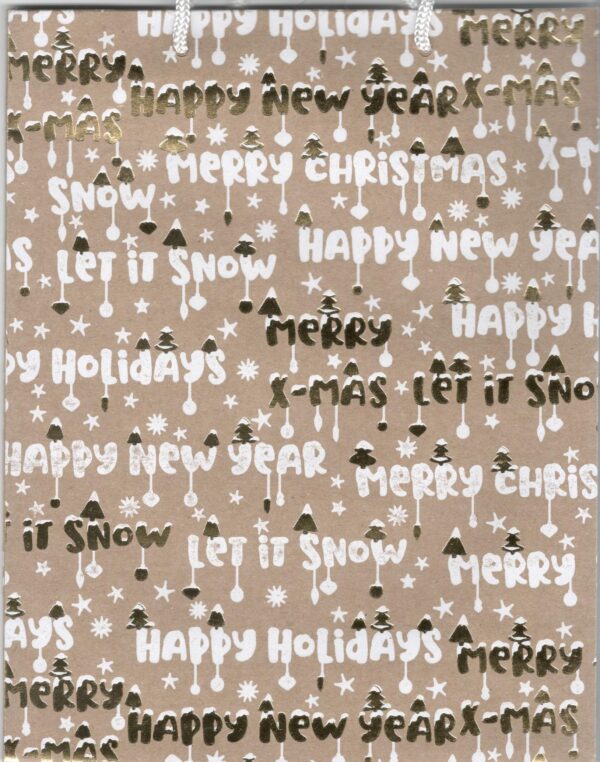 HAPPY HOLIDAYS MERRY
MERRY HAPPY NEW YEAR X-MAS
X-MAS MERRY CHRISTMAS X-M
SNOW HAPPY NEW YEA
AS LET iT SNOW
MERRY HAPPY H
PY HOLiDAYS X-MAS LET iT SNO
HAPPY NEW YEAR MERRY CHRIS
T iT SNOW LET iT SNOW MERRY
AYS HAPPY HOLiDAYS MERRY
MERRY HAPPY NEW YEAR X-MAS
X-MAS